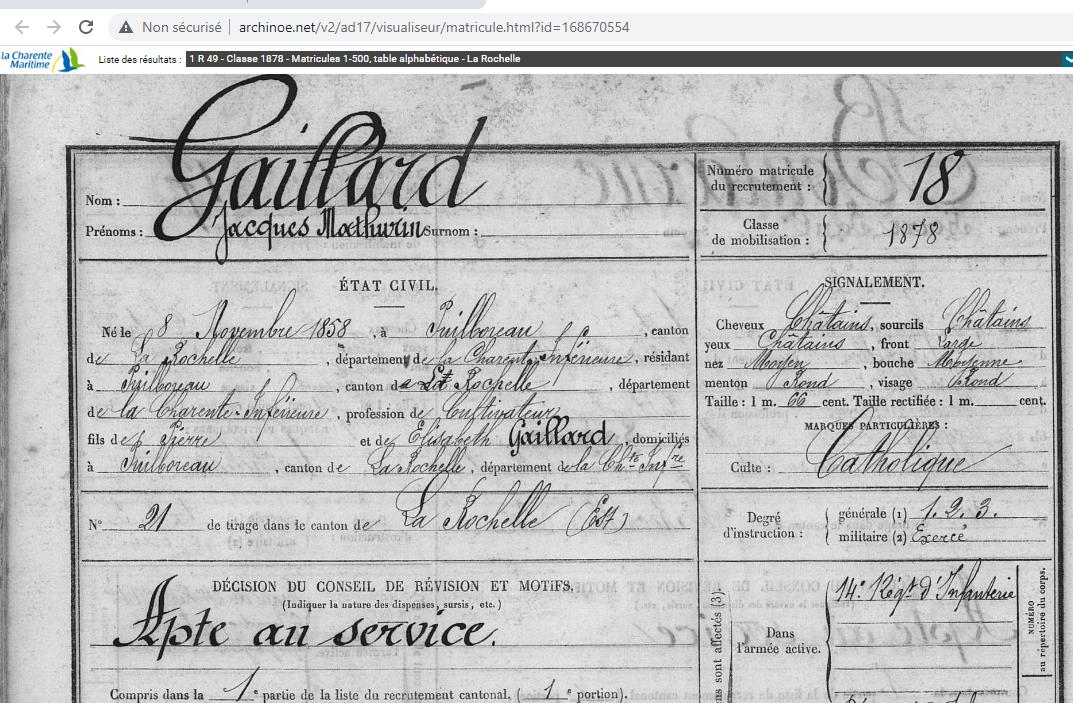 Non sécurisé | archinoe.net/v2/ad17/visualiseur/matricule.html?id=168670554
la Charente Maritime
Liste des résultats : 1 R 49 - Classe 1878 - Matricules 1-500, table alphabétique - La Rochelle
Nom : Gaillard
Prénoms : Jacques Mathurin Surnom :
Numéro matricule du recrutement : 18
Classe de mobilisation : 1878
ÉTAT CIVIL.
Né le 8 Novembre 1858, à Puilboreau, canton
de La Rochelle, département de la Charente Inférieure, résidant
à Puilboreau, canton de La Rochelle, département
de la Charente-Inférieure, profession de Cultivateur
fils de Pierre et de Elisabeth Gaillard, domiciliés
à Puilboreau, canton de La Rochelle, département de la Chte Infre
N° 21 de tirage dans le canton de La Rochelle (Est)
SIGNALEMENT.
Cheveux Châtains, sourcils Châtains
yeux Châtains, front Large
nez Moyen, bouche Moyenne
menton Rond, visage Rond
Taille : 1 m. 66 cent. Taille rectifiée : 1 m. cent.
MARQUES PARTICULIÈRES :
Culte : Catholique
Degré d'instruction : générale (1) 1. 2. 3.
militaire (2) Exercé
DÉCISION DU CONSEIL DE RÉVISION ET MOTIFS.
(Indiquer la nature des dispenses, sursis, etc.)
Apte au service.
Compris dans la 1e partie de la liste du recrutement cantonal. (1e portion).
ns sont affectés (3).
Dans l'armée active.
14e Régt d'Infanterie
NUMÉRO
au répertoire du corps.